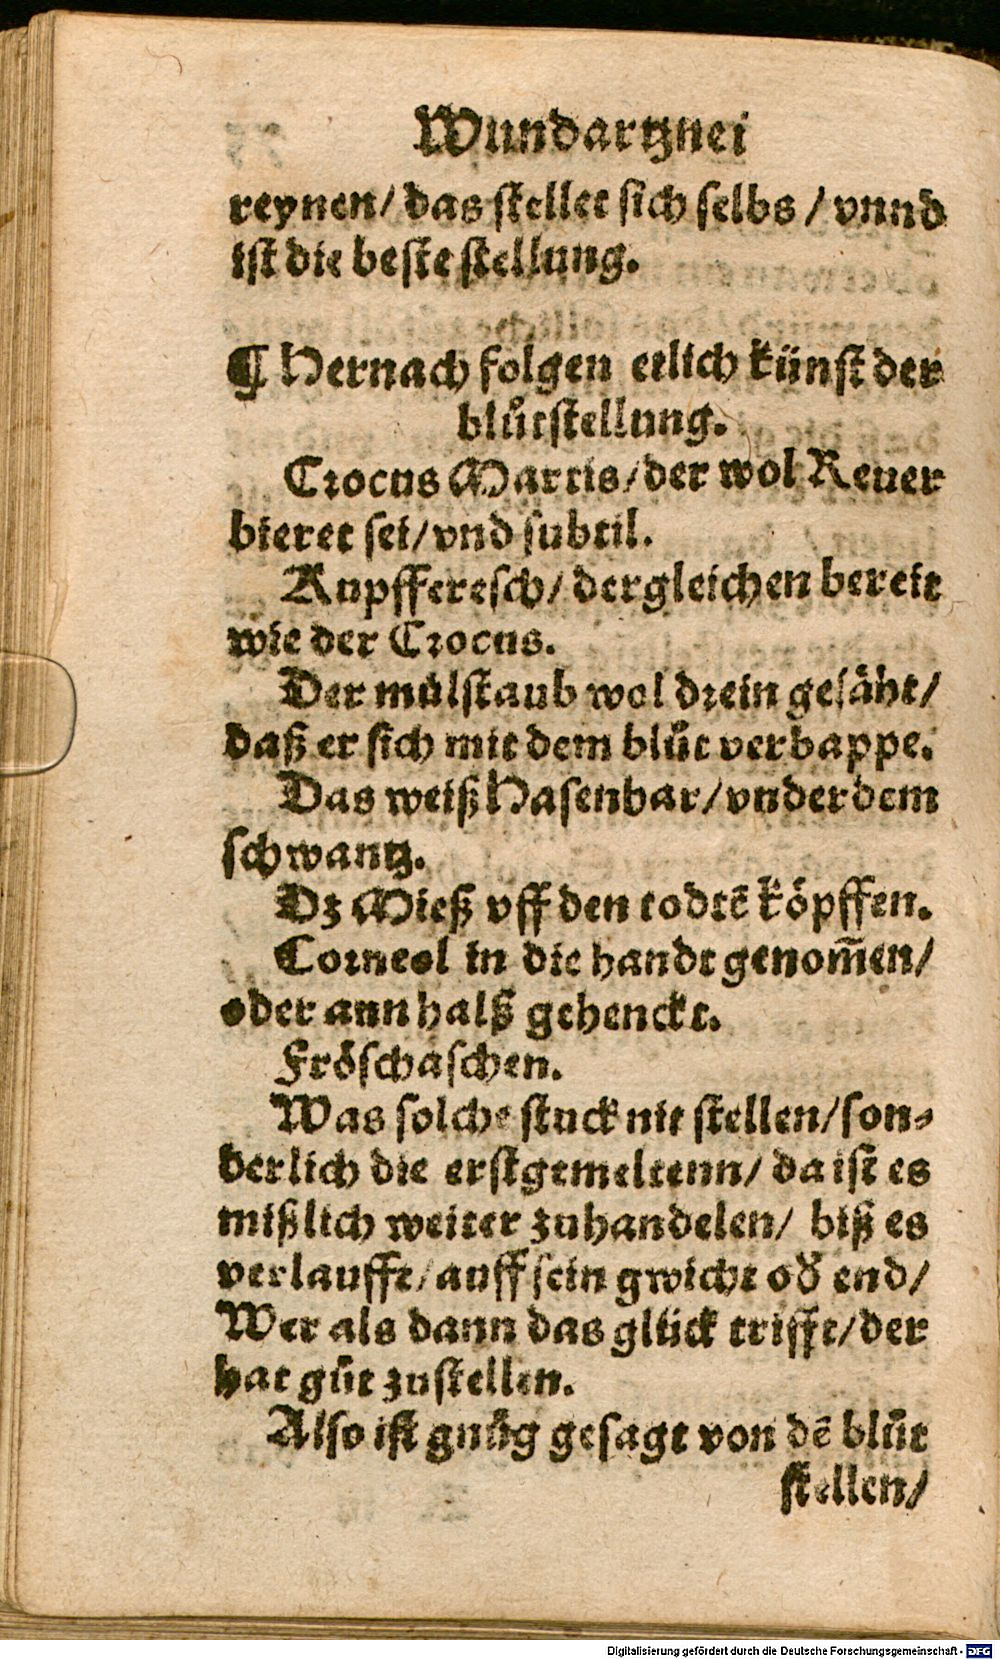 Wundartznei
reynen/ das stellet sich selbs / vnnd
ist die beste stellung.
¶ Hernach folgen etlich künst der
blůtstellung.
Crocus Martis/ der wol Reuer
bieret sei/ vnd subtil.
Kupfferesch/ dergleichen bereit
wie der Crocus.
Der můlstaub wol drein gesäht/
daß er sich mit dem blůt verbappe.
Das weiß Hasenhar/ vnder dem
schwantz.
Dz Mieß vff den todtē köpffen.
Corneol in die handt genom̄en/
oder ann halß gehenckt.
Fröschaschen.
Was solche stuck nit stellen/ son⸗
derlich die erstgemeltenn/ da ist es
mißlich weiter zuhandelen/ biß es
verlaufft/ auff sein gwicht oď end/
Wer als dann das glück trifft/ der
hat gůt zustellen.
Also ist gnůg gesagt von dē blůt
stellen/
Digitalisierung gefördert durch die Deutsche Forschungsgemeinschaft - DFG